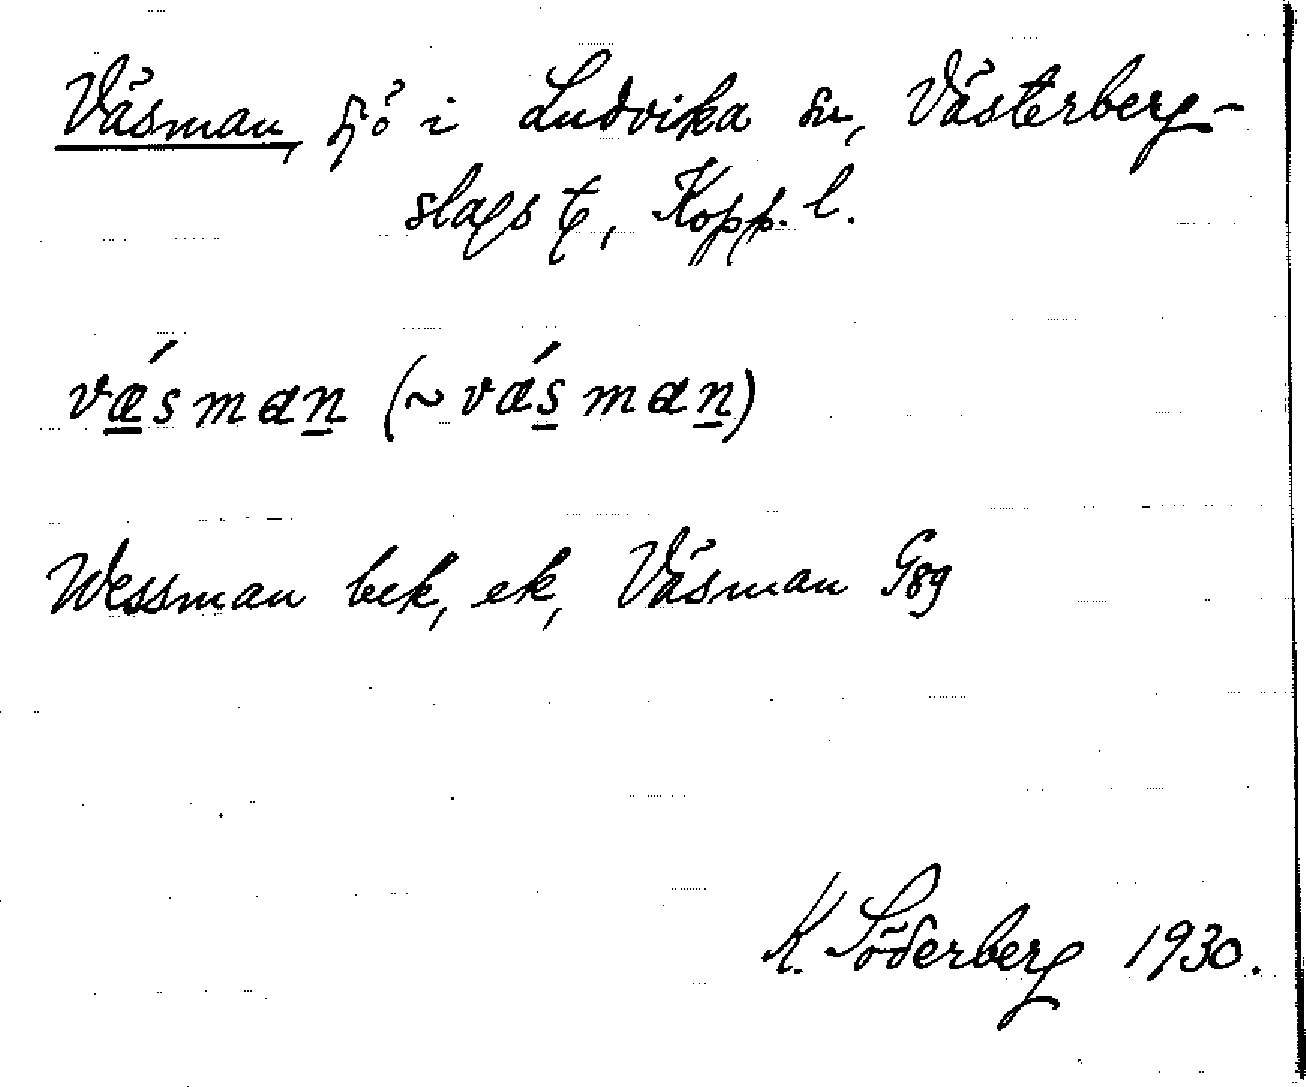 Väsman, sjö i Ludvika sn, Västerberg-
slags tg, Kopp. l.
vǽsman (~ vǽsman)
Wessman bek, ek, Väsman G89
K. Söderberg 1930.